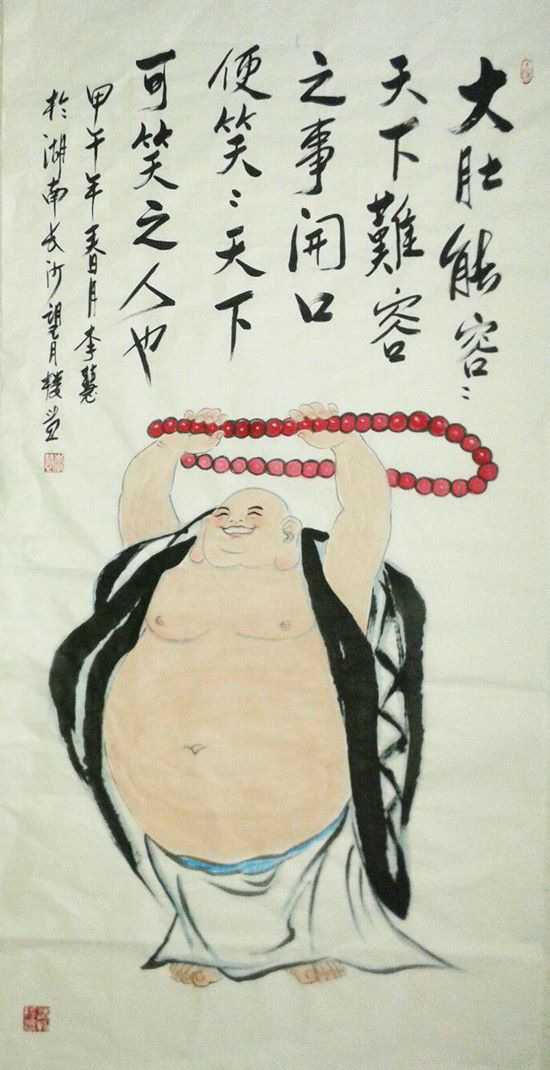 大肚能容〻
天下難容
之事開口
便笑〻天下
可笑之人也
甲午年春月李慧
於湖南長沙望月樓堂